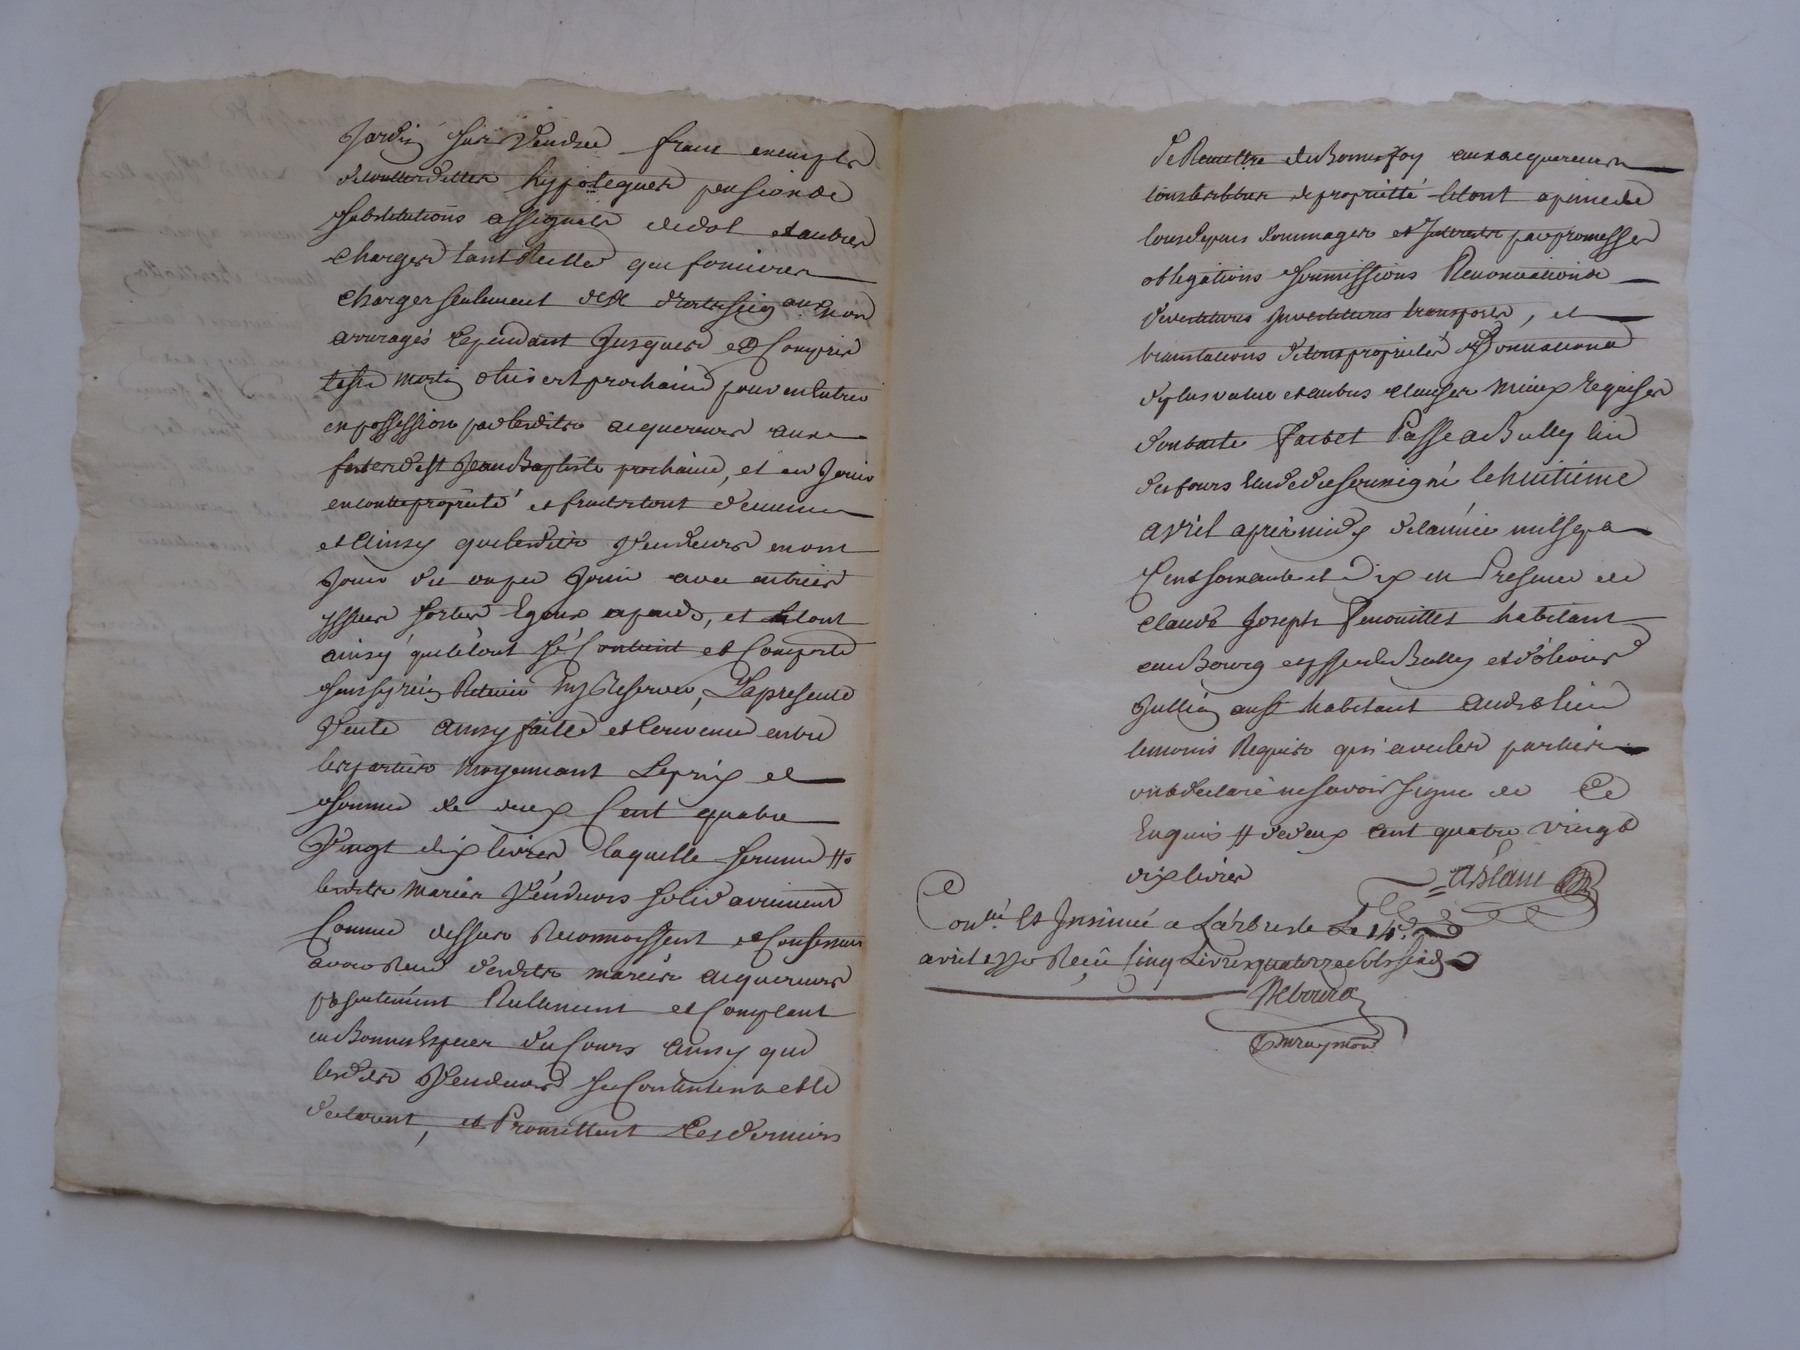 Jardin sus vendu franc exempts
de toutes dettes hypoteques pensions
substitutions assignats de dot et autres
charges tant Reelles que foncieres
charges seulement des droits seig.aux non
arreragés cependant jusques et Compris
la st martin d'hiver prochaine pour en entrer
en possession par lesdits acquereurs aux
festes de st Jean Baptiste prochaine, et en Jouir
en toutte proprieté et fruits tout de mesme
et Ainsy que lesdits Vendeurs en ont
Joui du ou peu Jouir avec entrées
yssues sorties Egoux apends, et le tout
ainsy que le tout sé Contient et Comporte
sans y rien Retenir ny Reserver, La presente
Vente ainsy faitte et Convenue entre
les parties moyennant Le prix et
somme de deux Cent quatre
Vingt dix livres laquelle somme #
lesdits mariés Vendeurs solidairement
Comme dessus Reconnoissent et Confessent
avoir Reçu desdits mariés acquereurs
presentement Reellement et Comptant
en Bonnes Especes du Cours ainsy que
lesdits Vendeurs se Contentent et le
declarent, et Promettent Ces derniers
de Remettre de Bonne foy aux acquereurs
tous les titres de proprietté le tout a peine de
tous depens dommages et Interests par promesses
obligations soumissions Renonciations
devestitures Investitures transports, et
translations de tous proprietés et Donnations
de plus value et autres clauses mieux Requises
dont acte fait et Passé a Bully lieu
des fours Etude du soussigné le huitieme
avril aprés midy de l'année mil sept
Cent soixante et dix en Presence de
claude Joseph Penouillet habitant
au Bourg et psse de Bully et d'olivier
Jullien aussi habitant audit lieu
temoins Requis qui avec les parties
ont declaré ne savoir signer de Ce
Enquis # de deux Cent quatre vingt
dix livres
Con.lé Et Insinué a L'arbresle Le 14.
avril 1770 Reçu Cinq Livres quatorze sols six d